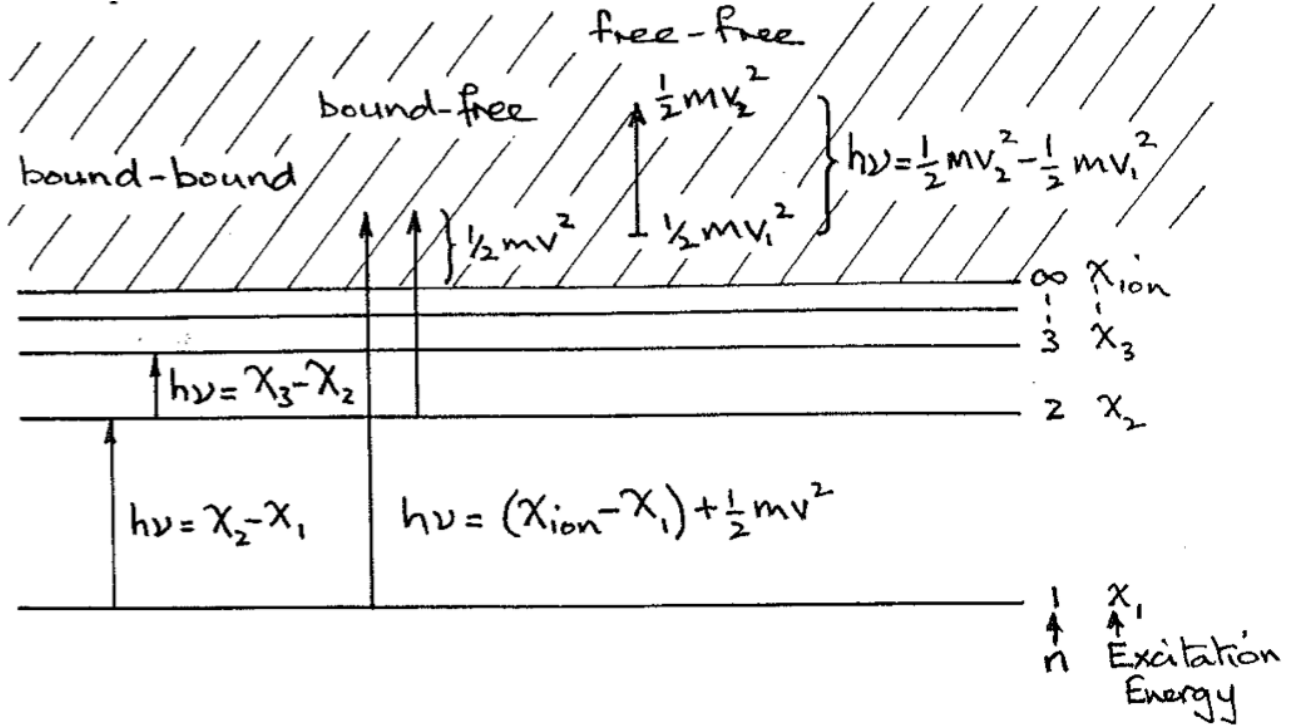 free-free
½mv₂²
bound-free
hν=½mv₂²-½mv₁²
bound-bound
½mv²
½mv₁²
∞ χion
3 χ₃
hν=χ₃-χ₂
2 χ₂
hν=χ₂-χ₁
hν=(χion-χ₁)+½mv²
1 χ₁
n Excitation
Energy